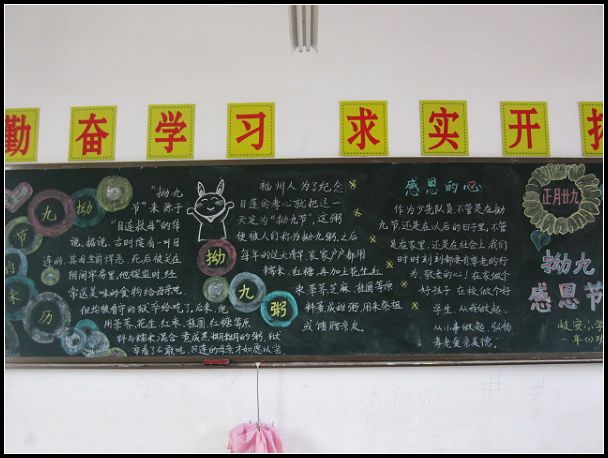 勤奋学习 求实开拓
拗九节的来历
"拗九
节"来源于
"目连救母"的传
说,据说,古时候有一叫目
连的,其母生前
死后被关在
阴间牢房里,他探监时,经
常送美味的食物给母亲吃,
但均被看守的狱卒给吃了。后来,他
用荸荠、花生、红枣、桂圆、红糖等原
料与糯米混合,煮成黑糊糊的粥,狱
卒看了不敢吃,目连的母亲才如愿以尝
拗九粥
福州人为了纪念
目连的孝心就把这一
天定为"拗九节",这粥
便被人们称为拗九粥,之后
每年的这天清早,家家户户都用
糯米、红糖,再加上花生、红
枣、荸荠、芝麻、桂圆等原
料煮成甜粥,用来祭祖
或馈赠亲友。
感恩的心
作为少先队员,不管是在拗
九节还是在以后的日子里,不管
是在家里,还是在社会上,我们
时时刻刻都要有尊老的行
为,敬老的心!在家做个
好孩子,在校做个好
学生,从我做起,
从小事做起,弘扬
孝老爱亲美德。
正月廿九
拗九
感恩节
岐安小学
一年(1)班